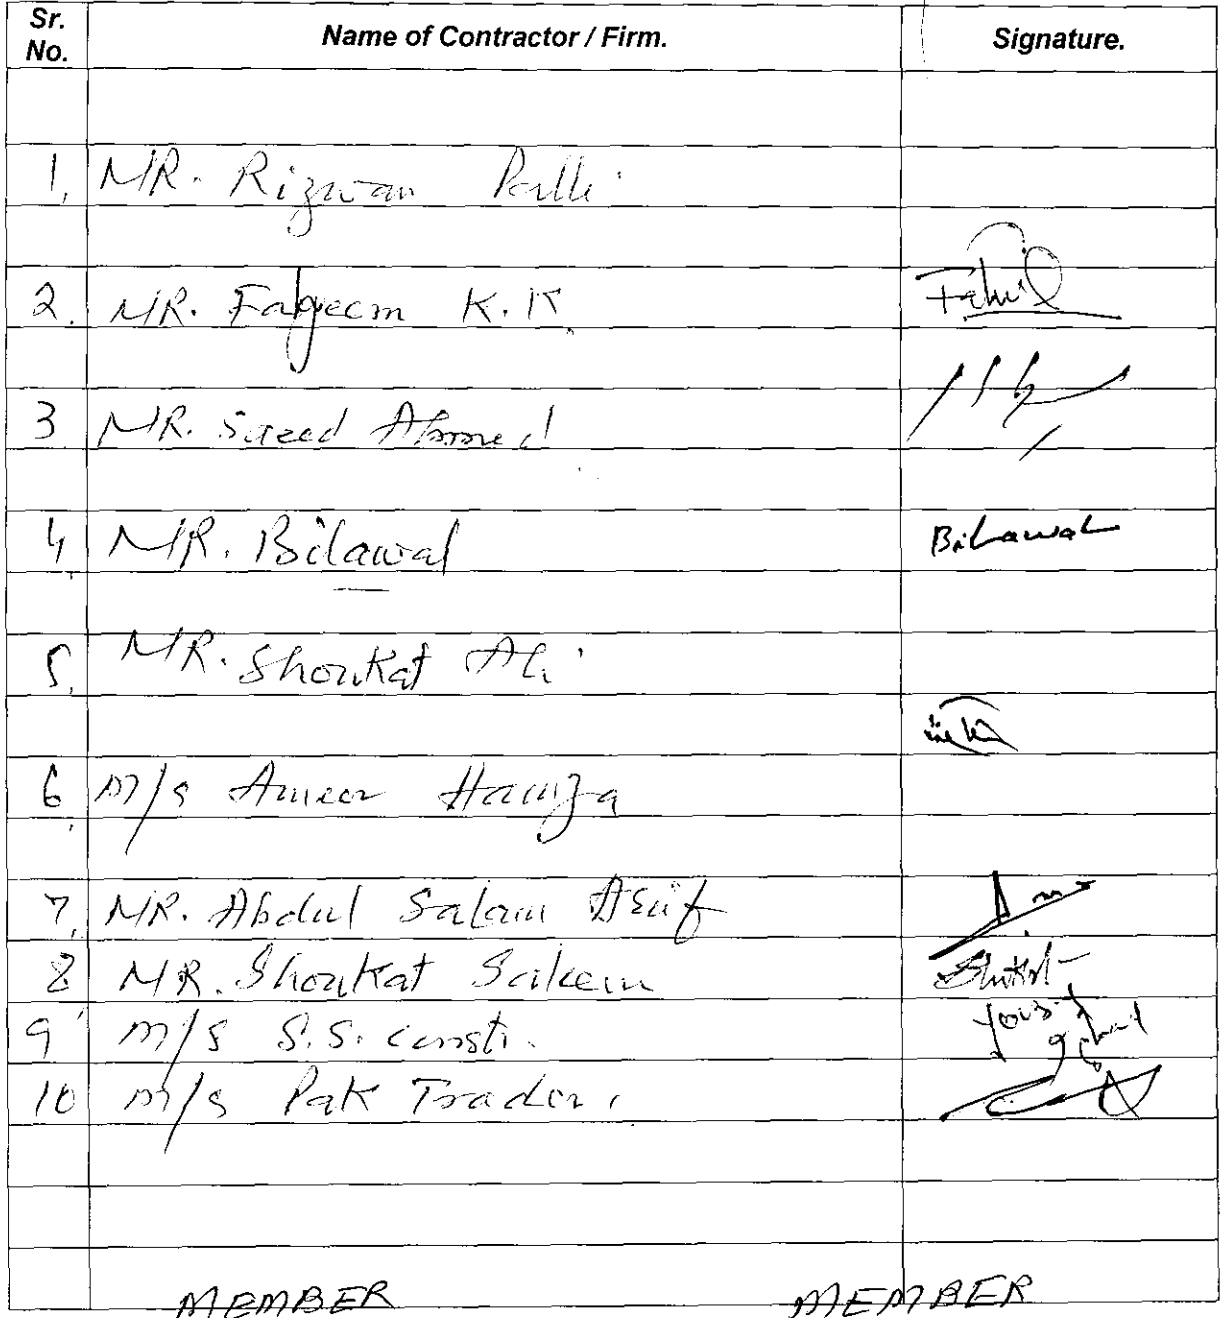 Sr. No. Name of Contractor / Firm. Signature.
1. MR. Rizwan
2. MR. Faheem K.K
3. MR. Saeed Ahmed
4, MR. Bilawal Bilawal
5, MR. Shoukat Ali
6, M/s Ameer Hamza
7, MR. Abdul Salam Asif
8 MR. Shoukat Saleem
9 M/s S.S. Const.
10 M/s Pak Traders
MEMBER MEMBER